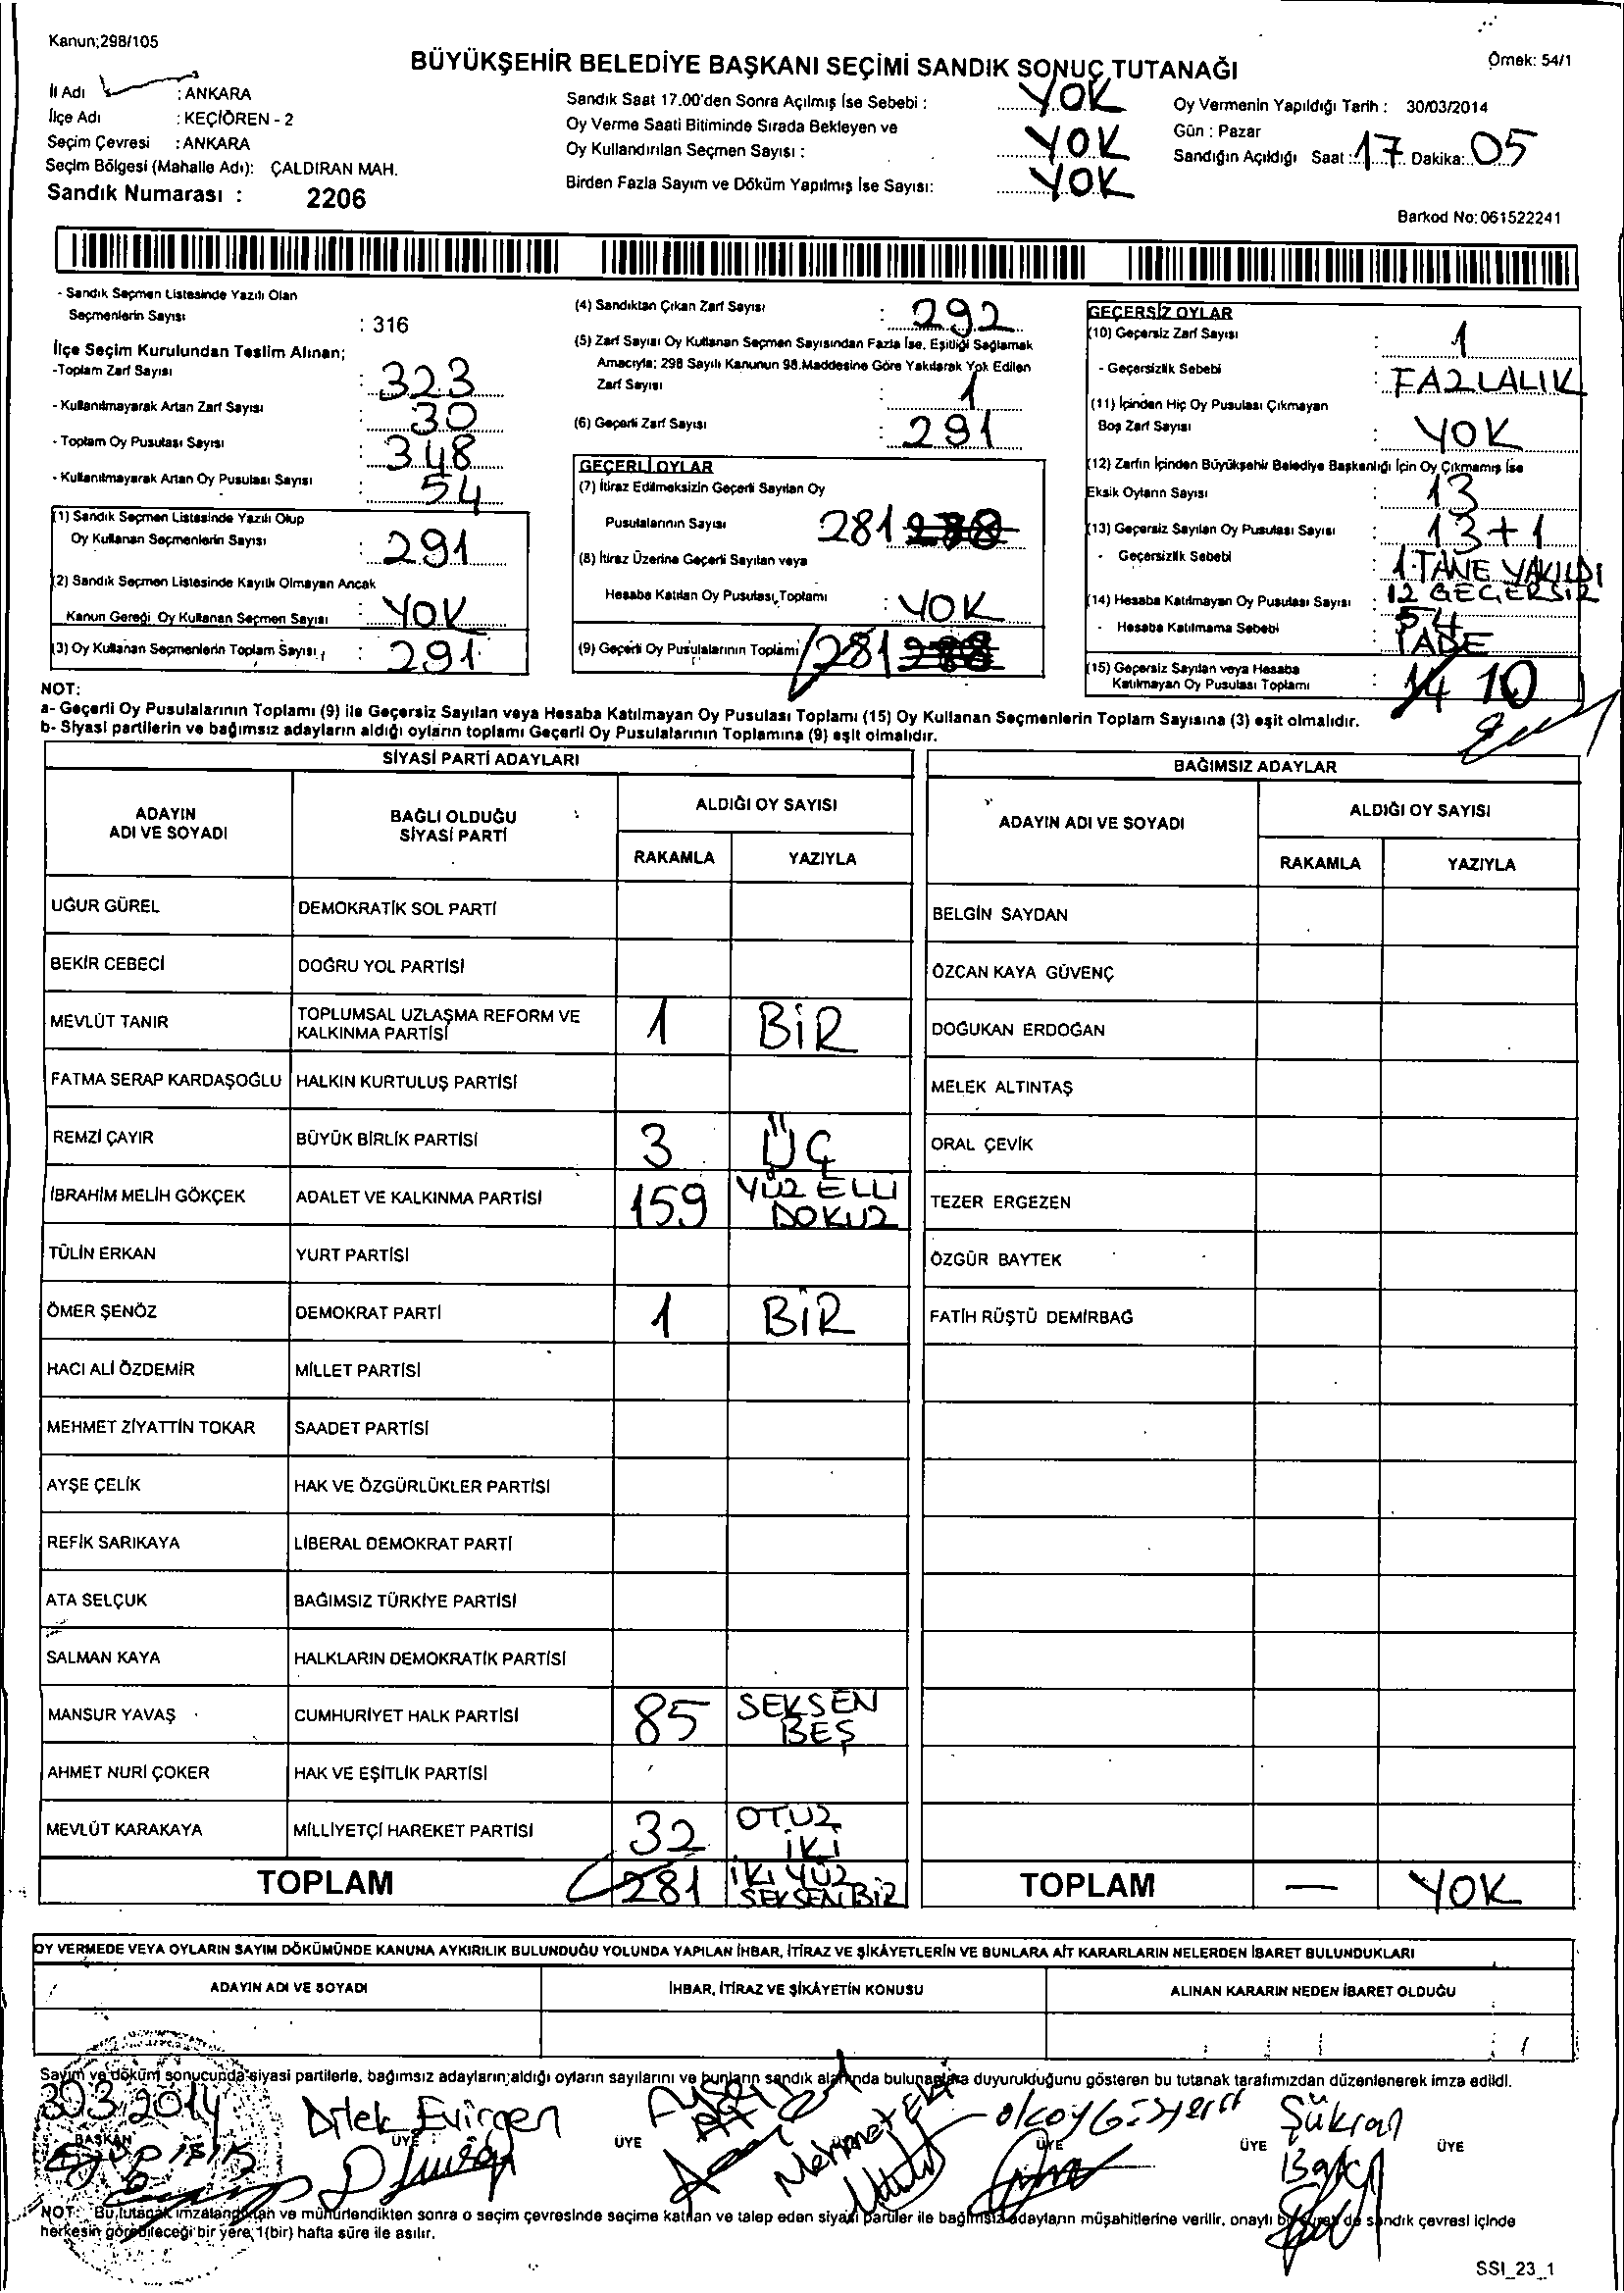 Kanun;298/105
BÜYÜKŞEHİR BELEDİYE BAŞKANI SEÇİMİ SANDIK SONUÇ TUTANAĞI
Örnek: 54/1
İl Adı : ANKARA
İlçe Adı : KEÇİÖREN - 2
Seçim Çevresi : ANKARA
Seçim Bölgesi (Mahalle Adı): ÇALDIRAN MAH.
Sandık Numarası : 2206
Sandık Saat 17.00'den Sonra Açılmış İse Sebebi : YOK
Oy Verme Saati Bitiminde Sırada Bekleyen ve
Oy Kullandırılan Seçmen Sayısı : YOK
Birden Fazla Sayım ve Döküm Yapılmış İse Sayısı: YOK
Oy Vermenin Yapıldığı Tarih : 30/03/2014
Gün : Pazar
Sandığın Açıldığı Saat : 17 Dakika: 05
Barkod No: 061522241
- Sandık Seçmen Listesinde Yazılı Olan
Seçmenlerin Sayısı : 316
İlçe Seçim Kurulundan Teslim Alınan;
-Toplam Zarf Sayısı : 323
- Kullanılmayarak Artan Zarf Sayısı : 30
- Toplam Oy Pusulası Sayısı : 348
- Kullanılmayarak Artan Oy Pusulası Sayısı : 54
(1) Sandık Seçmen Listesinde Yazılı Olup
Oy Kullanan Seçmenlerin Sayısı : 291
(2) Sandık Seçmen Listesinde Kayıtlı Olmayan Ancak
Kanun Gereği Oy Kullanan Seçmen Sayısı : YOK
(3) Oy Kullanan Seçmenlerin Toplam Sayısı : 291
(4) Sandıktan Çıkan Zarf Sayısı : 292
(5) Zarf Sayısı Oy Kullanan Seçmen Sayısından Fazla İse, Eşitliği Sağlamak
Amacıyla; 298 Sayılı Kanunun 98.Maddesine Göre Yakılarak Yok Edilen
Zarf Sayısı : 1
(6) Geçerli Zarf Sayısı : 291
GEÇERLİ OYLAR
(7) İtiraz Edilmeksizin Geçerli Sayılan Oy
Pusulalarının Sayısı 281
(8) İtiraz Üzerine Geçerli Sayılan veya
Hesaba Katılan Oy Pusulası Toplamı : YOK
(9) Geçerli Oy Pusulalarının Toplamı 281
GEÇERSİZ OYLAR
(10) Geçersiz Zarf Sayısı : 1
- Geçersizlik Sebebi : FAZLALIK
(11) İçinden Hiç Oy Pusulası Çıkmayan
Boş Zarf Sayısı : YOK
(12) Zarfın İçinden Büyükşehir Belediye Başkanlığı İçin Oy Çıkmamış İse
Eksik Oyların Sayısı : 13
(13) Geçersiz Sayılan Oy Pusulası Sayısı : 13+1
- Geçersizlik Sebebi : 1 TANE YAKILDI
12 GEÇERSİZ
(14) Hesaba Katılmayan Oy Pusulası Sayısı : 54
- Hesaba Katılmama Sebebi : İADE
(15) Geçersiz Sayılan veya Hesaba
Katılmayan Oy Pusulası Toplamı : 14 10
NOT:
a- Geçerli Oy Pusulalarının Toplamı (9) ile Geçersiz Sayılan veya Hesaba Katılmayan Oy Pusulası Toplamı (15) Oy Kullanan Seçmenlerin Toplam Sayısına (3) eşit olmalıdır.
b- Siyasi partilerin ve bağımsız adayların aldığı oyların toplamı Geçerli Oy Pusulalarının Toplamına (9) eşit olmalıdır.
SİYASİ PARTİ ADAYLARI
ADAYIN ADI VE SOYADI BAĞLI OLDUĞU SİYASİ PARTİ ALDIĞI OY SAYISI
RAKAMLA YAZIYLA
UĞUR GÜREL DEMOKRATİK SOL PARTİ
BEKİR CEBECİ DOĞRU YOL PARTİSİ
MEVLÜT TANIR TOPLUMSAL UZLAŞMA REFORM VE KALKINMA PARTİSİ 1 BİR
FATMA SERAP KARDAŞOĞLU HALKIN KURTULUŞ PARTİSİ
REMZİ ÇAYIR BÜYÜK BİRLİK PARTİSİ 3 ÜÇ
İBRAHİM MELİH GÖKÇEK ADALET VE KALKINMA PARTİSİ 159 YÜZ ELLİ DOKUZ
TÜLİN ERKAN YURT PARTİSİ
ÖMER ŞENÖZ DEMOKRAT PARTİ 1 BİR
HACI ALİ ÖZDEMİR MİLLET PARTİSİ
MEHMET ZİYATTİN TOKAR SAADET PARTİSİ
AYŞE ÇELİK HAK VE ÖZGÜRLÜKLER PARTİSİ
REFİK SARIKAYA LİBERAL DEMOKRAT PARTİ
ATA SELÇUK BAĞIMSIZ TÜRKİYE PARTİSİ
SALMAN KAYA HALKLARIN DEMOKRATİK PARTİSİ
MANSUR YAVAŞ CUMHURİYET HALK PARTİSİ 85 SEKSEN BEŞ
AHMET NURİ ÇOKER HAK VE EŞİTLİK PARTİSİ
MEVLÜT KARAKAYA MİLLİYETÇİ HAREKET PARTİSİ 32 OTUZ İKİ
TOPLAM 281 İKİ YÜZ SEKSEN BİR
BAĞIMSIZ ADAYLAR
ADAYIN ADI VE SOYADI ALDIĞI OY SAYISI
RAKAMLA YAZIYLA
BELGİN SAYDAN
ÖZCAN KAYA GÜVENÇ
DOĞUKAN ERDOĞAN
MELEK ALTINTAŞ
ORAL ÇEVİK
TEZER ERGEZEN
ÖZGÜR BAYTEK
FATİH RÜŞTÜ DEMİRBAĞ
TOPLAM — YOK
OY VERMEDE VEYA OYLARIN SAYIM DÖKÜMÜNDE KANUNA AYKIRILIK BULUNDUĞU YOLUNDA YAPILAN İHBAR, İTİRAZ VE ŞİKÂYETLERİN VE BUNLARA AİT KARARLARIN NELERDEN İBARET BULUNDUKLARI
ADAYIN ADI VE SOYADI İHBAR, İTİRAZ VE ŞİKÂYETİN KONUSU ALINAN KARARIN NEDEN İBARET OLDUĞU
Sayım ve döküm sonucunda siyasi partilerle, bağımsız adayların aldığı oyların sayılarını ve bunların sandık alanında bulunanlara duyurulduğunu gösteren bu tutanak tarafımızdan düzenlenerek imza edildi.
30.3.2014 Dilek Evirgen Mehmet Şükran
BAŞKAN ÜYE ÜYE ÜYE ÜYE ÜYE
NOT: Bu tutanak imzalandıktan ve mühürlendikten sonra o seçim çevresinde seçime katılan ve talep eden siyasi partiler ile bağımsız adayların müşahitlerine verilir, onaylı bir sureti de sandık çevresi içinde
herkesin görebileceği bir yere 1(bir) hafta süre ile asılır.
SSI_23_1